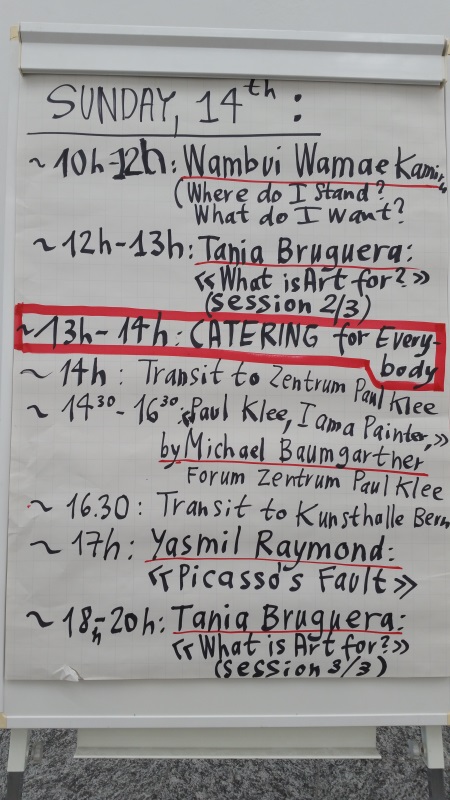 SUNDAY, 14th :
~ 10h-12h: Wambui Wamae
(Where do I stand?
What do I want?
~ 12h-13h: Tania Bruguera:
«What is Art for?»
(session 2/3)
~13h-14h: CATERING for Every-
body
~ 14h : Transit to Zentrum Paul Klee
~ 14 30 - 16 30: «Paul Klee, I am a Painter,»
by Michael Baumgarther
Forum Zentrum Paul Klee
~ 16.30 : Transit to Kunsthalle Bern
~ 17h: Yasmil Raymond:
«Picasso's Fault»
~ 18h-20h: Tania Bruguera:
«What is Art for?»
(session 3/3)